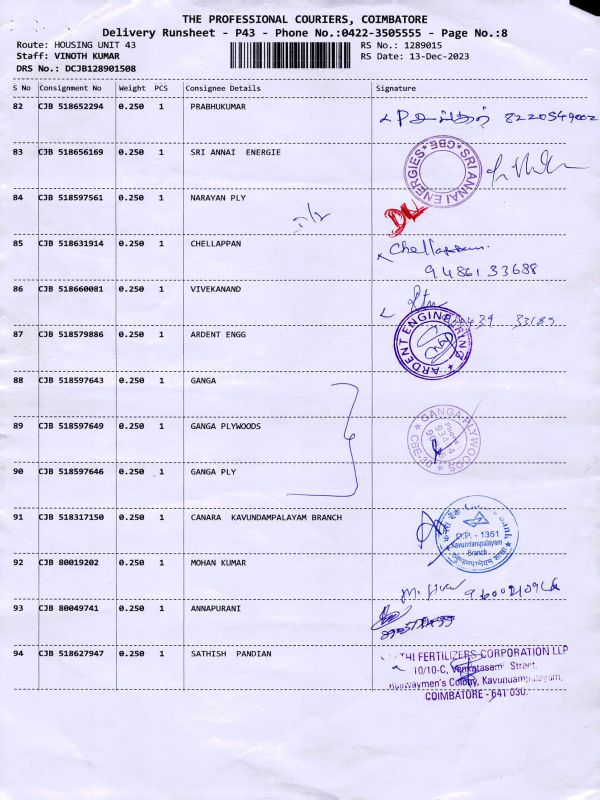 THE PROFESSIONAL COURIERS, COIMBATORE
Delivery Runsheet - P43 - Phone No.:0422-3505555 - Page No.:8
Route: HOUSING UNIT 43 RS No.: 1289015
Staff: VINOTH KUMAR RS Date: 13-Dec-2023
DRS No.: DCJB128901508
S No Consignment No Weight PCS Consignee Details Signature
82 CJB 518652294 0.250 1 PRABHUKUMAR
8220549002
83 CJB 518656169 0.250 1 SRI ANNAI ENERGIE
SRI ANNAI ENERGIES * CBE *
84 CJB 518597561 0.250 1 NARAYAN PLY
DL
85 CJB 518631914 0.250 1 CHELLAPPAN
Chellappan.
9486133688
86 CJB 518660081 0.250 1 VIVEKANAND
87 CJB 518579886 0.250 1 ARDENT ENGG
ARDENT ENGINEERING
88 CJB 518597643 0.250 1 GANGA
89 CJB 518597649 0.250 1 GANGA PLYWOODS
GANGA PLYWOODS
CBE-30
Phone
90 CJB 518597646 0.250 1 GANGA PLY
91 CJB 518317150 0.250 1 CANARA KAVUNDAMPALAYAM BRANCH
Canara Bank
D.P. - 1351
Kavundampalayam
Branch
92 CJB 80019202 0.250 1 MOHAN KUMAR
93 CJB 80049741 0.250 1 ANNAPURANI
94 CJB 518627947 0.250 1 SATHISH PANDIAN
FERTILIZERS CORPORATION LLP
10/10-C, Venkatasami Street,
Colony, Kavundampalayam,
COIMBATORE - 641 030.